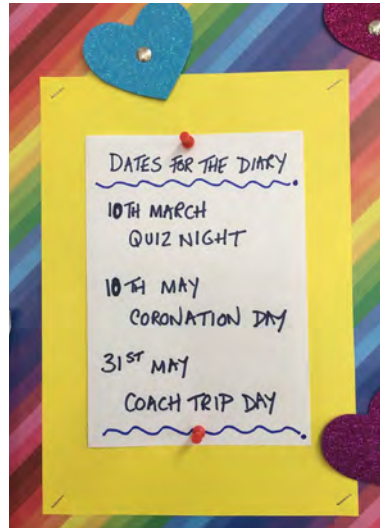 DATES FOR THE DIARY
10TH MARCH
QUIZ NIGHT
10TH MAY
CORONATION DAY
31ST MAY
COACH TRIP DAY